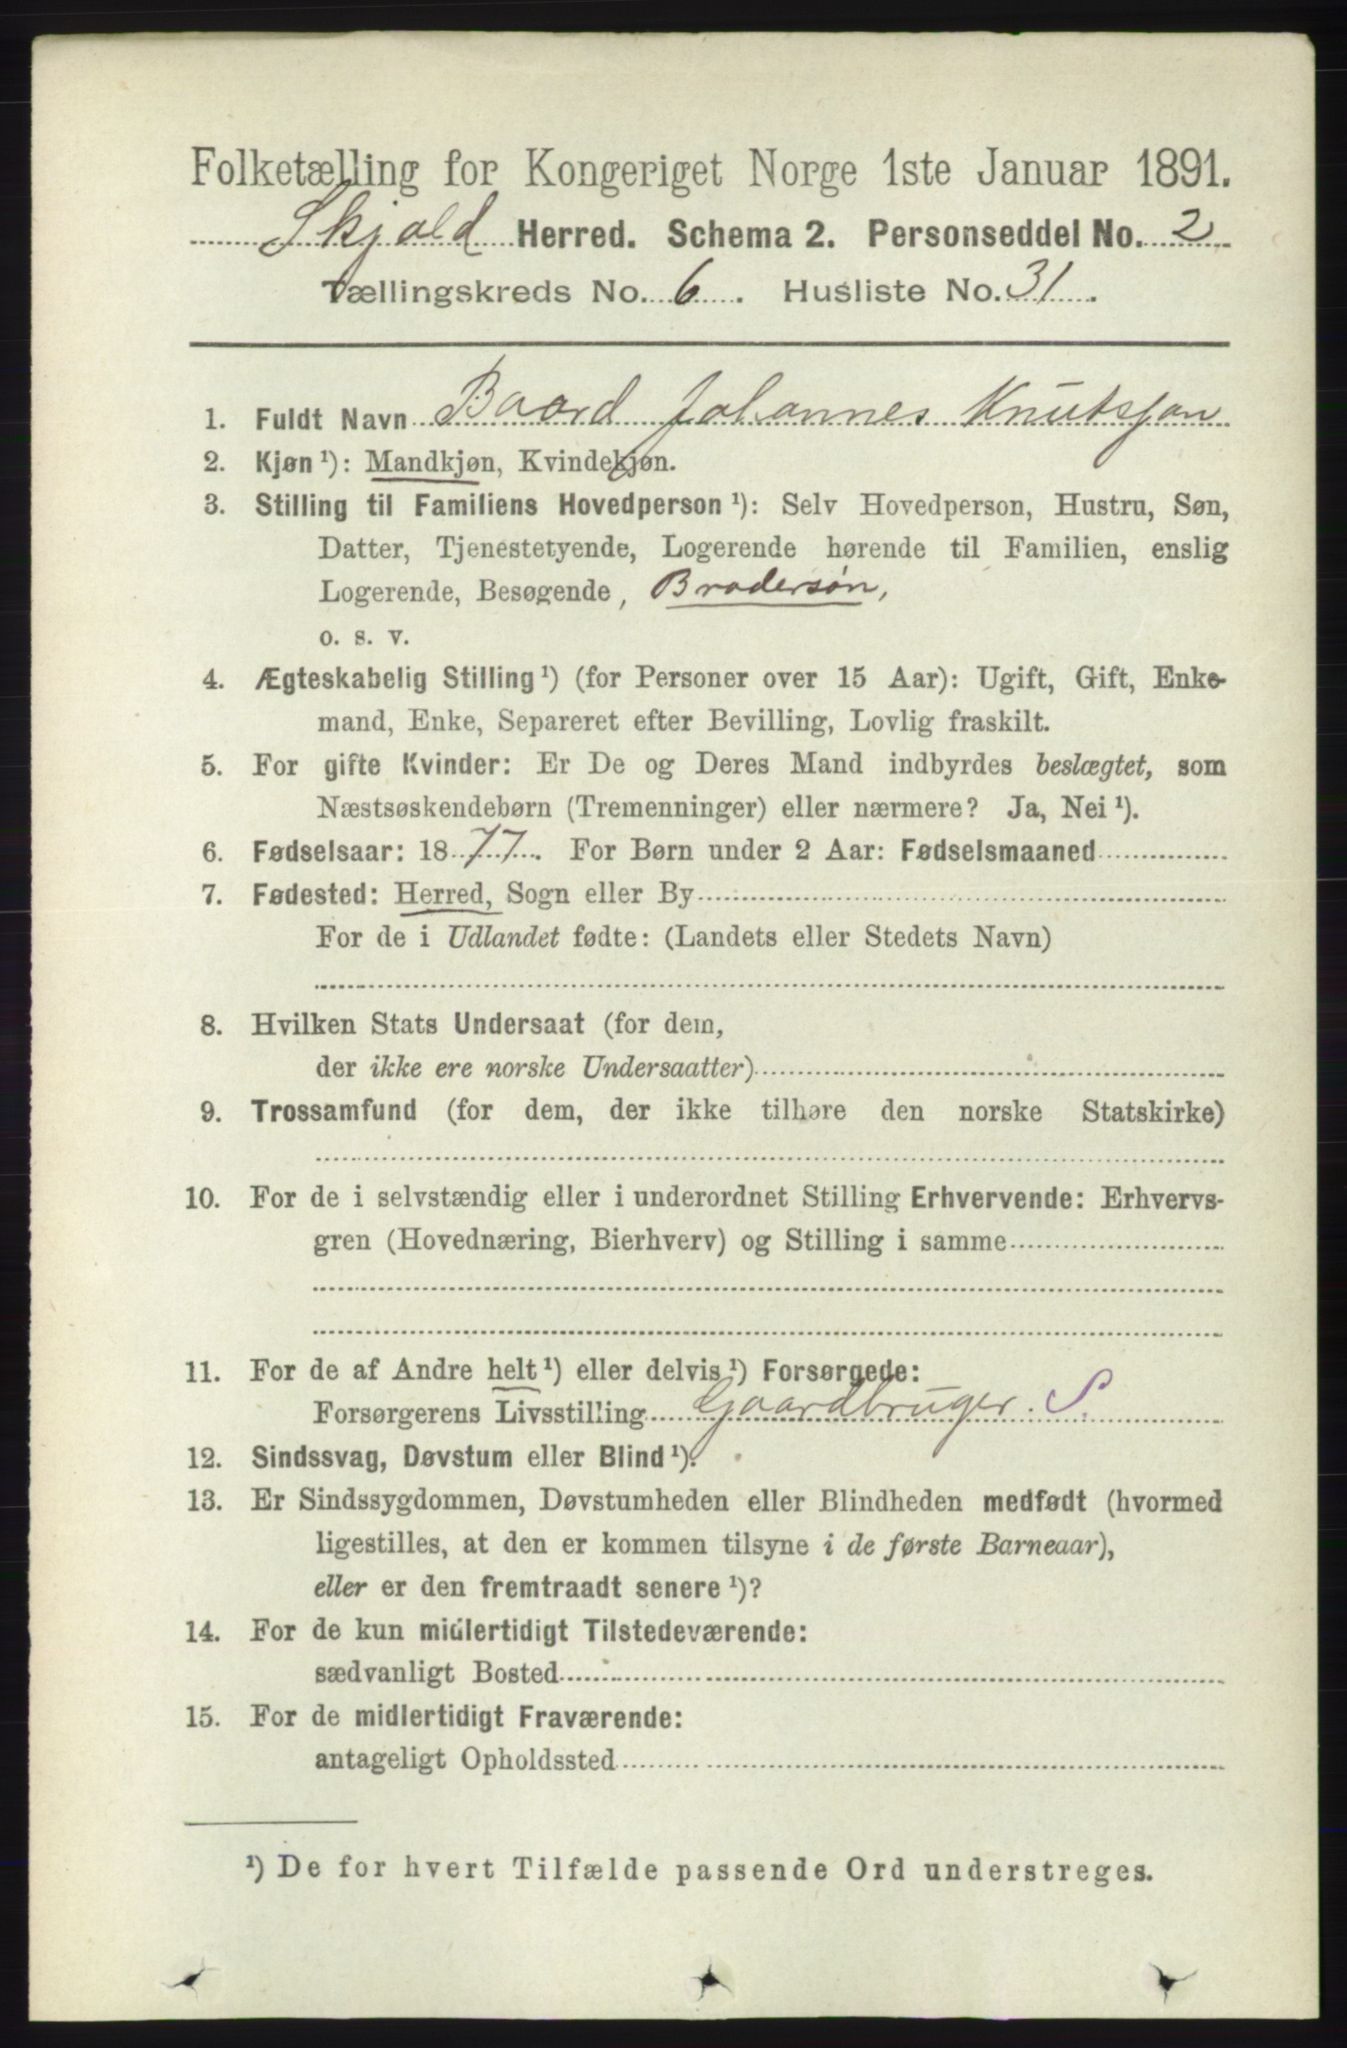 Folketælling for Kongeriget Norge 1ste Januar 1891.
Skjold Herred. Schema 2. Personseddel No. 2
Tællingskreds No. 6. Husliste No. 31.
1. Fuldt Navn Baard Johannes Knutsson
2. Kjøn ¹): Mandkjøn, Kvindekjøn.
3. Stilling til Familiens Hovedperson ¹): Selv Hovedperson, Hustru, Søn,
Datter, Tjenestetyende, Logerende hørende til Familien, enslig
Logerende, Besøgende, Brodersøn,
o. s. v.
4. Ægteskabelig Stilling ¹) (for Personer over 15 Aar): Ugift, Gift, Enke-
mand, Enke, Separeret efter Bevilling, Lovlig fraskilt.
5. For gifte Kvinder: Er De og Deres Mand indbyrdes beslægtet, som
Næstsøskendebørn (Tremenninger) eller nærmere? Ja, Nei ¹).
6. Fødselsaar: 1877. For Børn under 2 Aar: Fødselsmaaned
7. Fødested: Herred, Sogn eller By
For de i Udlandet fødte: (Landets eller Stedets Navn)
8. Hvilken Stats Undersaat (for dem,
der ikke ere norske Undersaatter)
9. Trossamfund (for dem, der ikke tilhøre den norske Statskirke)
10. For de i selvstændig eller i underordnet Stilling Erhvervende: Erhvervs-
gren (Hovednæring, Bierhverv) og Stilling i samme
11. For de af Andre helt ¹) eller delvis ¹) Forsørgede:
Forsørgerens Livsstilling Gaardbruger. S.
12. Sindssvag, Døvstum eller Blind ¹).
13. Er Sindssygdommen, Døvstumheden eller Blindheden medfødt (hvormed
ligestilles, at den er kommen tilsyne i de første Barneaar),
eller er den fremtraadt senere ¹)?
14. For de kun midlertidigt Tilstedeværende:
sædvanligt Bosted
15. For de midlertidigt Fraværende:
antageligt Opholdssted
¹) De for hvert Tilfælde passende Ord understreges.